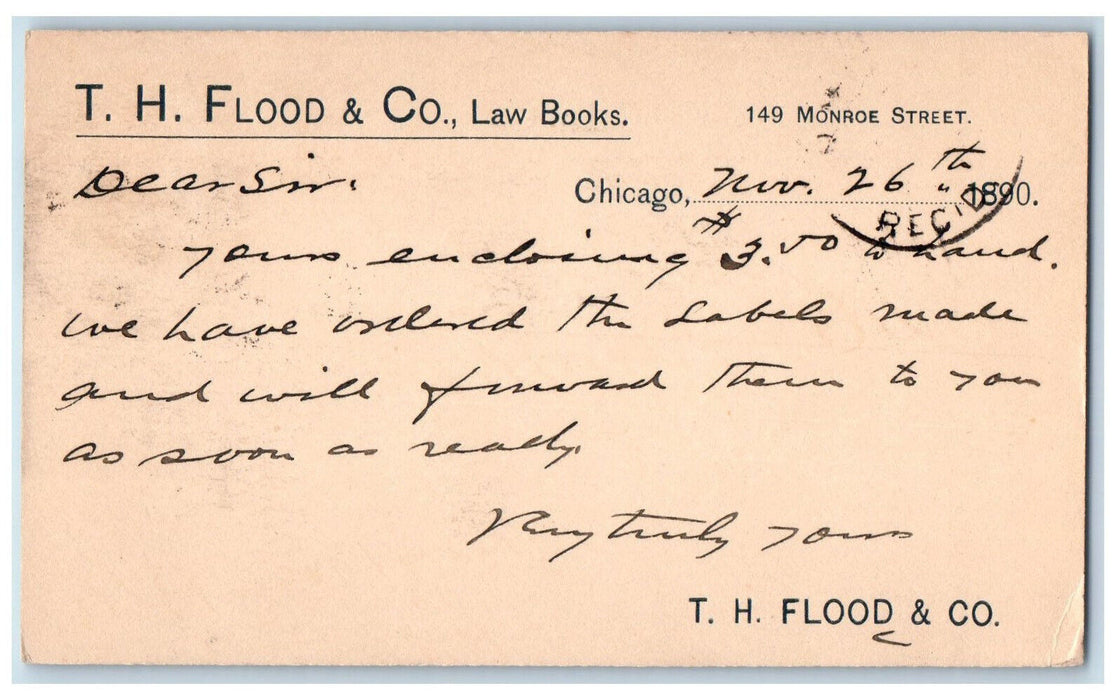 T. H. FLOOD & CO., LAW BOOKS. 149 MONROE STREET.
Dear Sir.
Chicago, Nov. 26th 1890.
REC'D
Yours enclosing $3.50 to hand.
we have ordered the Labels made
and will forward them to you
as soon as ready.
Very truly yours
T. H. FLOOD & CO.